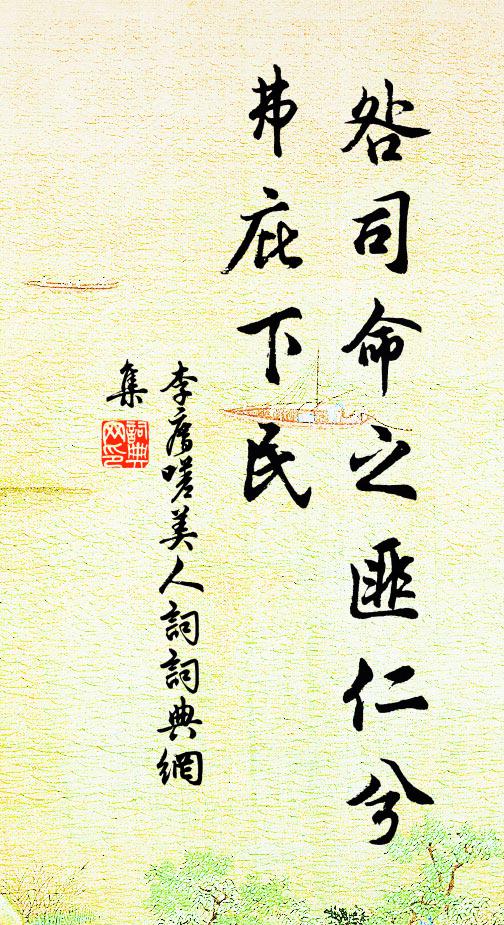 咎司命之匪仁兮
弗庇下民
李廌嗟美人詞詞典網
集
詞典
网印